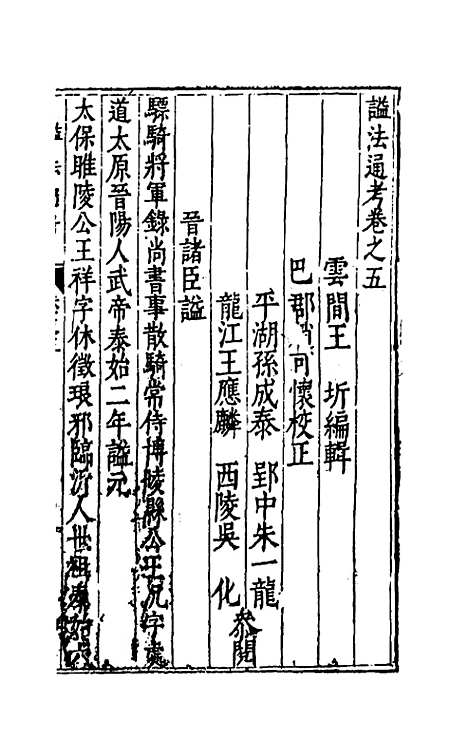 諡法通考卷之五
雲間王　圻編輯
巴郡趙可懷校正
平湖孫成泰　郢中朱一龍
龍江王應麟　西陵吳　化
叅閱
晉諸臣諡
驃騎將軍錄尚書事散騎常侍博陵縣公王沉字處
道太原晉陽人武帝泰始二年諡元
太保睢陵公王祥字休徵琅邪臨沂人世祖泰始